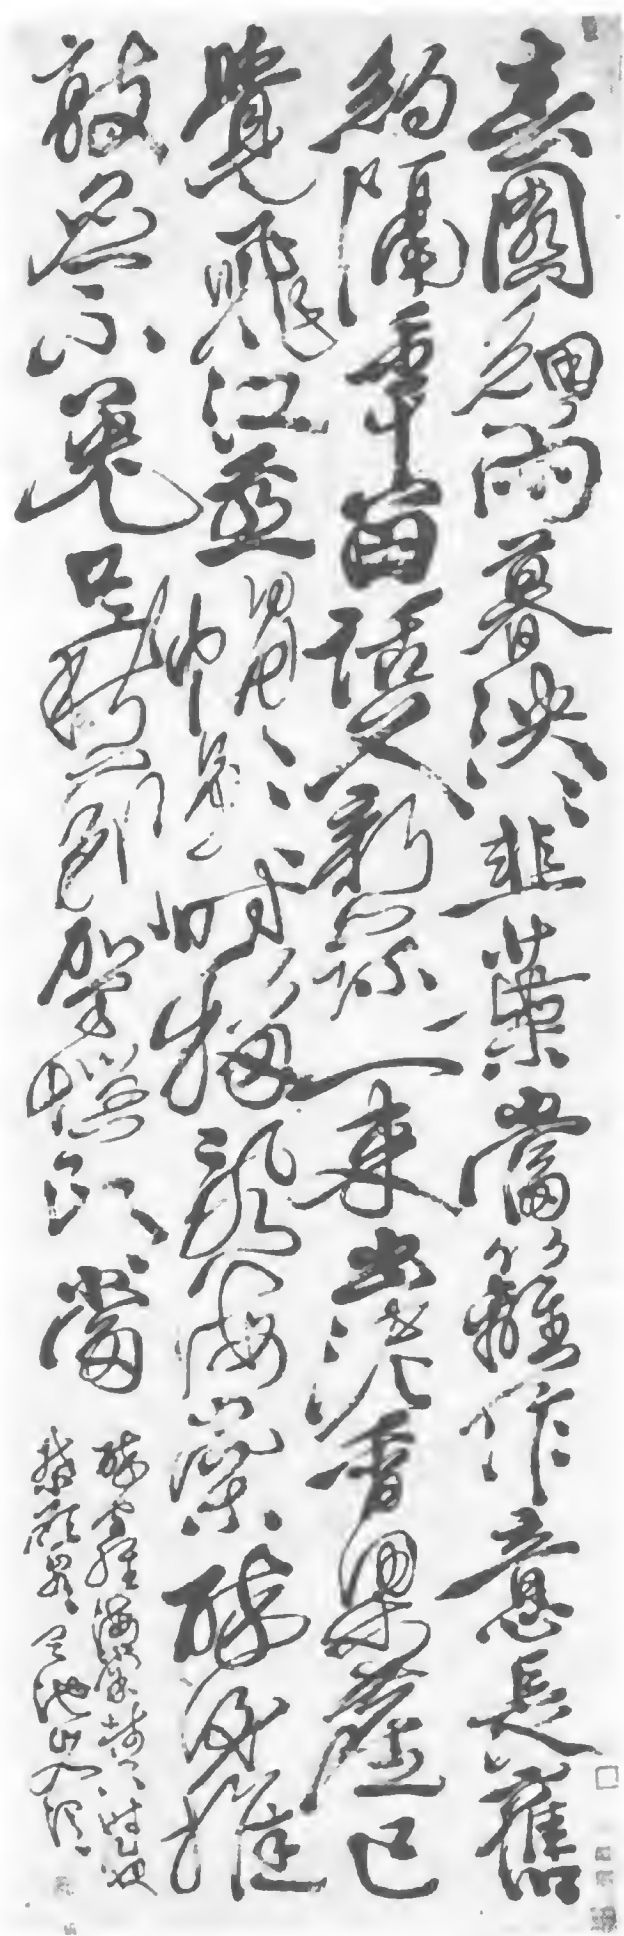 春園細雨暮泱泱韭葉當籬作意長舊
約隔年留話久新蔬一束出泥香梁塵已
覺飛江燕帽影時移亂海棠醉後推
敲應不免駕惱郎當
海棠樹下時夜
禁嚴天池山人渭